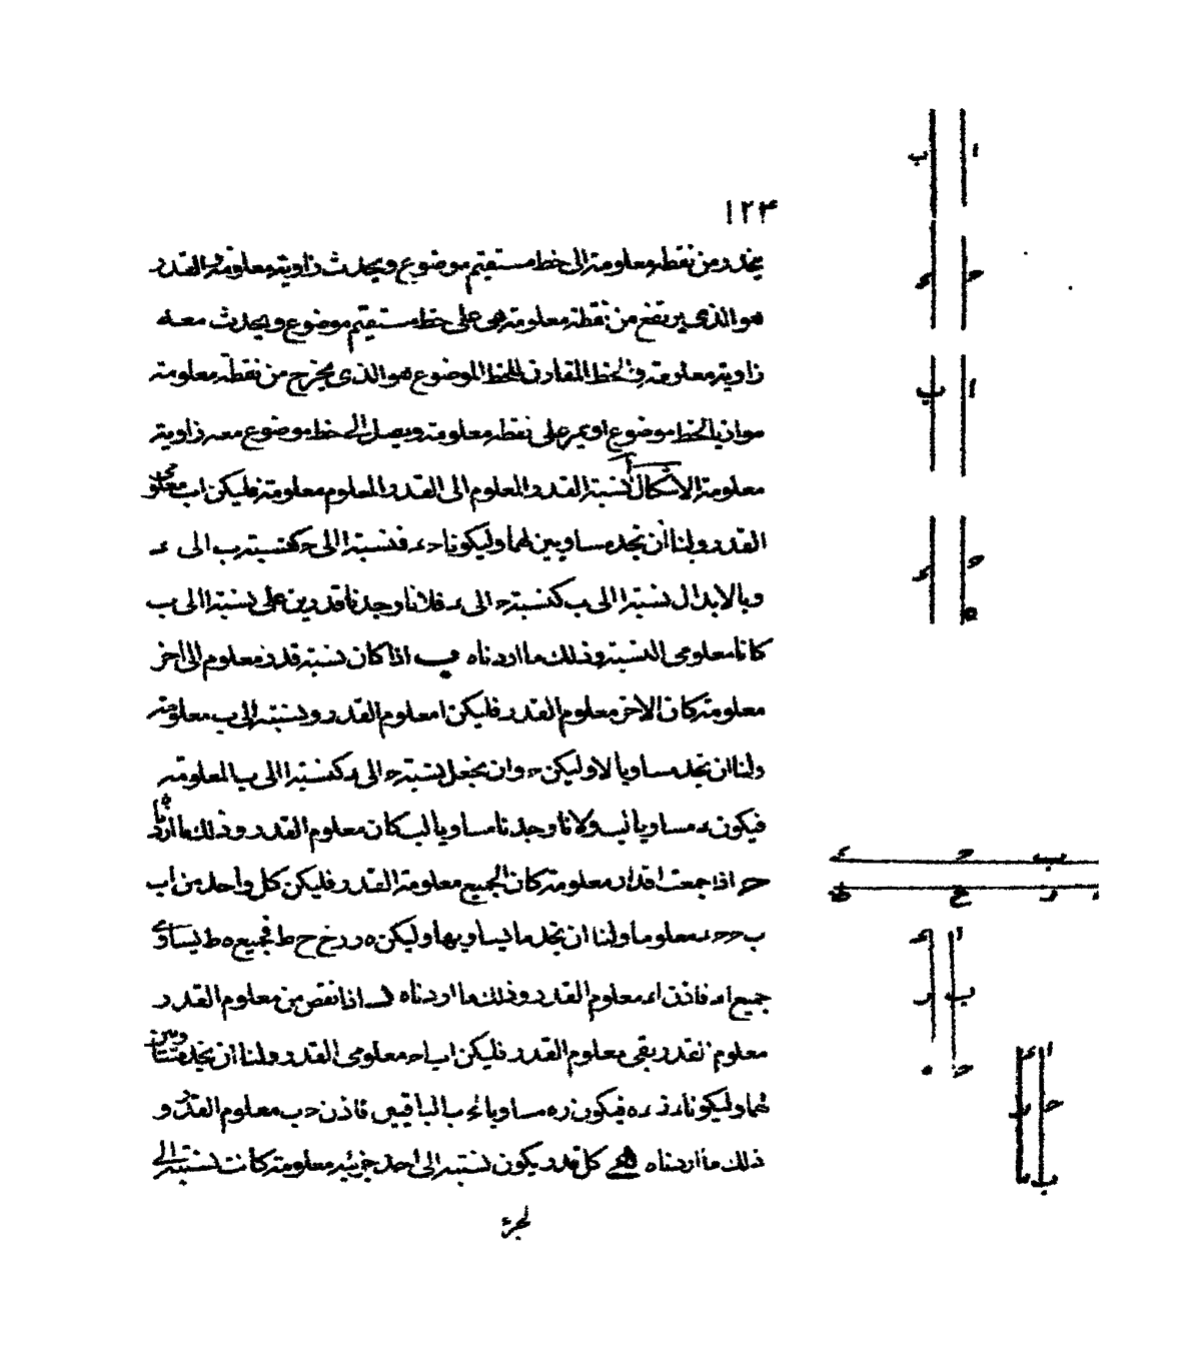 ١٢٣
ينحدر من نقطه معلومة الى خط مستقيم موضوع ويحدث زاوية معلومة والقدر
هو الذى يرتفع من نقطة معلومة هى على خط مستقيم موضوع ويحدث معه
زاوية معلومة فى الخط المقارن للخط الموضوع هو الذى يخرج من نقطة معلومة
موازيا لخط موضوع او يمر على نقطه معلومة ويصل الى خط موضوع معه زاوية
معلومة الاشكال ا نسبة القدر المعلوم الى القدر المعلوم معلومة فليكن اب معلومى
القدر ولنا ان نجد مساويين لهما وليكونا حء فنسبة ا الى ح كنسبة ب الى ء
وبالابدال نسبة ا الى ب كنسبة ح الى ء فلانا وجدنا قدرين على نسبة ا الى ب
كانا معلومى النسبة وذلك ما اردناه ب اذا كان نسبة قدر معلوم الى اخر
معلومة كان الاخر معلوم القدر فليكن ا معلوم القدر ونسبته الى ب معلومة
ولنا ان نجد مساويا لا وليكن ح وان نجعل نسبة ح الى ء كنسبة ا الى ب المعلومة
فيكون ء مساويا لب ولانا وجدنا مساويا لب كان معلوم القدر وذلك ما اردناه
ح اذا جمعت اقدار معلومة كان الجميع معلومة القدر فليكن كل واحد من اب
ب ح حء معلوما ولنا ان نجد ما يساويها وليكن ه ر رح ح ط فجميع ه ط يساوى
جميع اء فاذن اء معلوم القدر وذلك ما اردناه د اذا نقص من معلوم القدر
معلوم القدر بقى معلوم القدر فليكن اب اح معلومى القدر ولنا ان نجد متساويين
لهما وليكونا ء ر ء ه فيكون ر ه مساويا لح ب الباقيين فاذن ح ب معلوم القدر و
ذلك ما اردناه ه كل قدر يكون نسبته الى احد جزئيه معلومة كانت نسبته الى
لجزء
ا ب
ح ء
ا ب
ح ء
ه
ب ح ء
ه ر ح ط
ا ء
ب ر
ح ه
ا ء
ح ه
ب ر